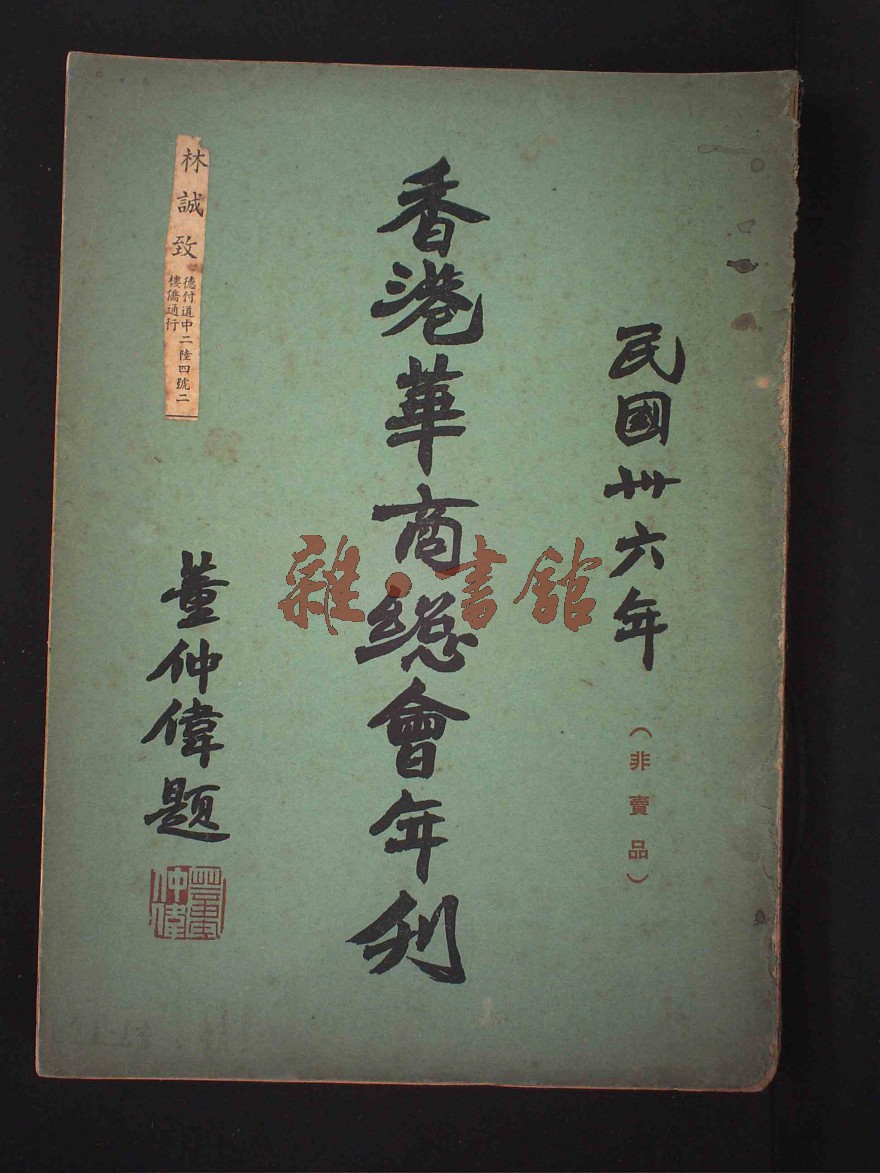 民國卅六年
（非賣品）
香港華商總會年刊
林誠致
德付道中二陸四號二
樓僑通行
董仲偉題
仲偉
雜·書館